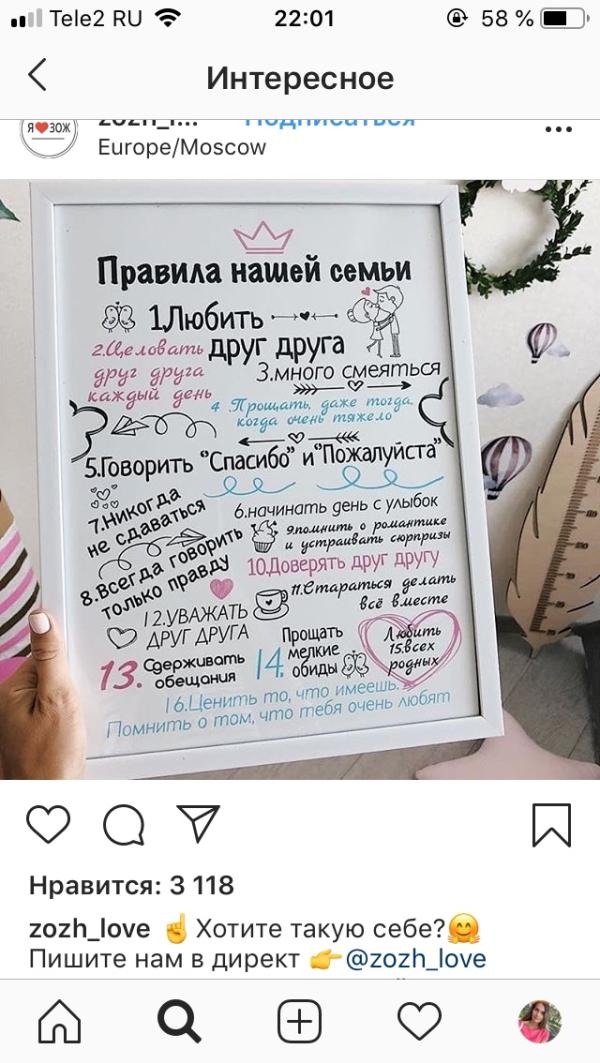 Tele2 RU 22:01 58 %
Интересное
Я❤ЗОЖ
Подписаться
Europe/Moscow
Правила нашей семьи
1Любить
друг друга
2.Целовать
друг друга
каждый день
3.много смеяться
4 Прощать, даже тогда,
когда очень тяжело
5.Говорить "Спасибо" и "Пожалуйста"
6.начинать день с улыбок
7.Никогда
не сдаваться
8.Всегда говорить
только правду
9помнить о романтике
и устраивать сюрпризы
10.Доверять друг другу
11.Стараться делать
всё вместе
12.УВАЖАТЬ
ДРУГ ДРУГА
13. Сдерживать
обещания
14. Прощать
мелкие
обиды
Любить
15.всех
родных
16.Ценить то, что имеешь.
Помнить о том, что тебя очень любят
Нравится: 3 118
zozh_love ☝Хотите такую себе?🤗
Пишите нам в директ 👉@zozh_love